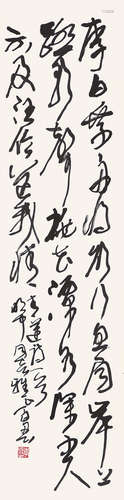 李白乘舟將欲行忽聞岸上
踏歌聲桃花潭水深千尺
不及汪倫送我情
青蓮詩一首
同志雅正